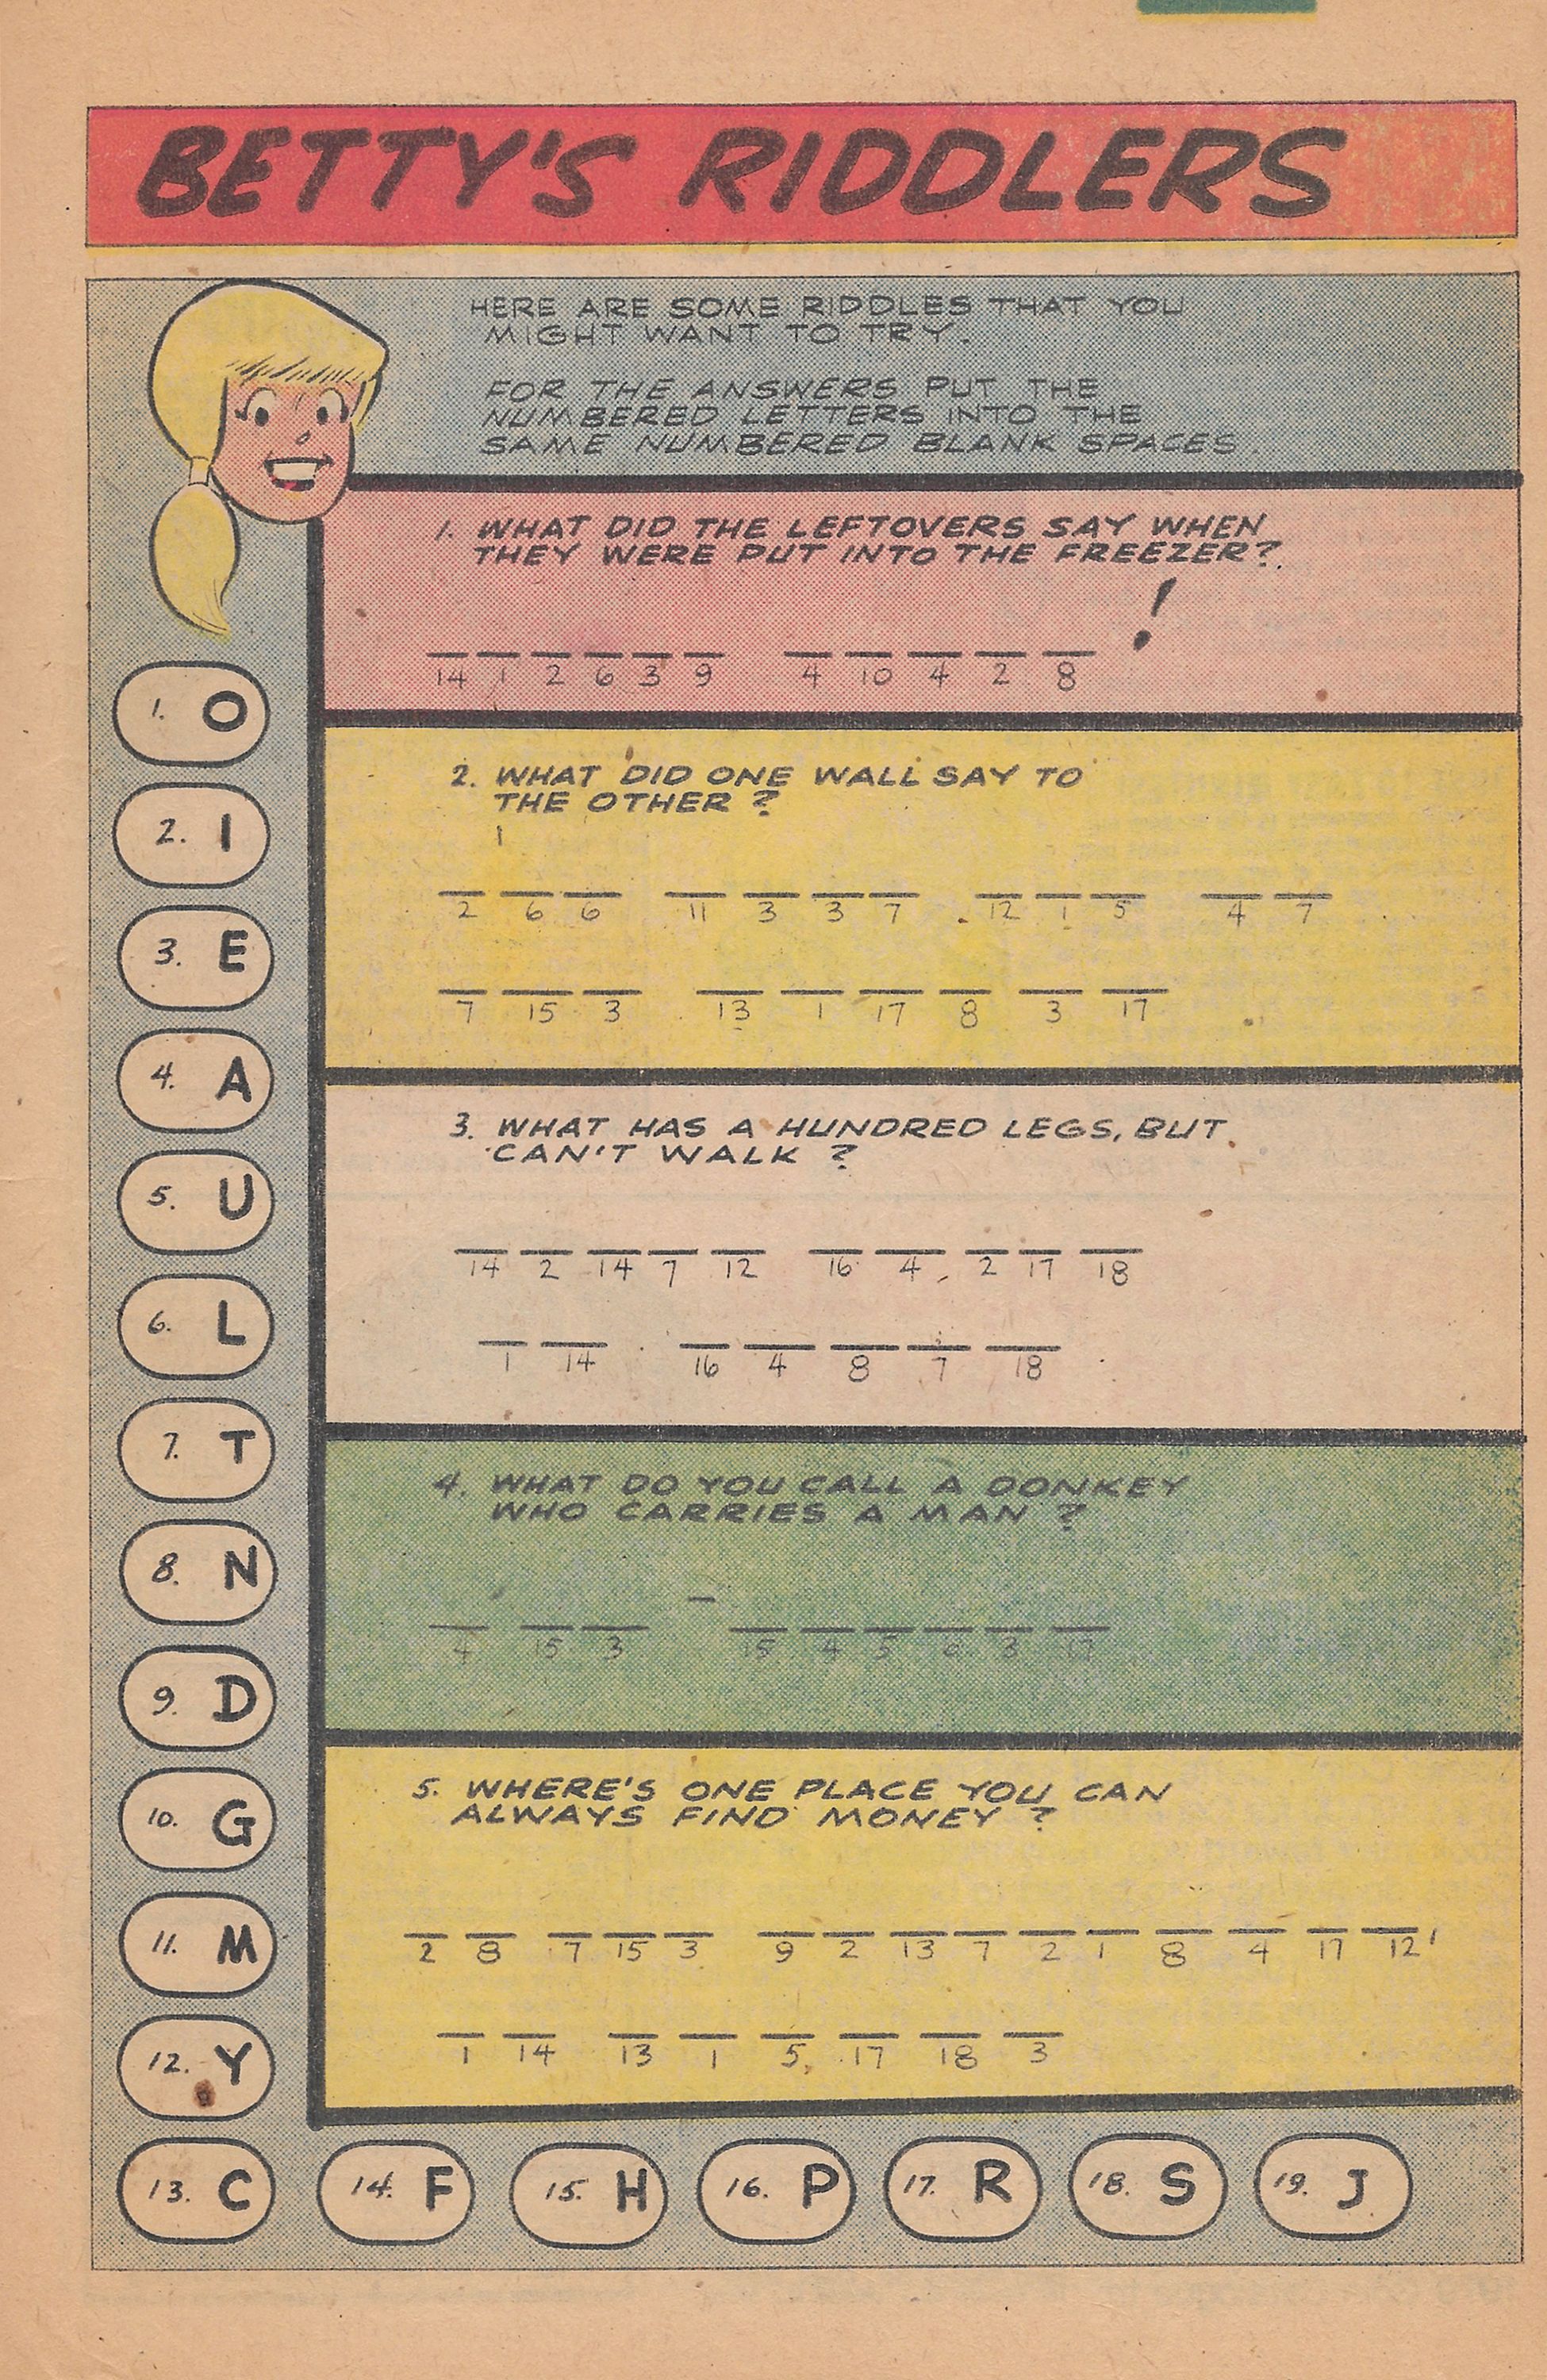 BETTY'S RIDDLERS
HERE ARE SOME RIDDLES THAT YOU
MIGHT WANT TO TRY.
FOR THE ANSWERS PUT THE
NUMBERED LETTERS INTO THE
SAME NUMBERED BLANK SPACES.
1. WHAT DID THE LEFTOVERS SAY WHEN
THEY WERE PUT INTO THE FREEZER?
!
14 1 2 6 3 9 4 10 4 2 8
2. WHAT DID ONE WALL SAY TO
THE OTHER?
2 6 6 11 3 3 7 12 1 5 4 7
7 15 3 13 1 17 8 3 17
3. WHAT HAS A HUNDRED LEGS, BUT
CAN'T WALK?
14 2 14 7 12 16 4 2 17 18
1 14 16 4 8 7 18
4. WHAT DO YOU CALL A DONKEY
WHO CARRIES A MAN?
4 15 3 - 15 4 5 6 3 17
5. WHERE'S ONE PLACE YOU CAN
ALWAYS FIND MONEY?
2 8 7 15 3 9 2 13 7 2 1 8 4 17 12,
1 14 13 1 5 17 18 3
1. O
2. I
3. E
4. A
5. U
6. L
7. T
8. N
9. D
10. G
11. M
12. Y
13. C
14. F
15. H
16. P
17. R
18. S
19. J